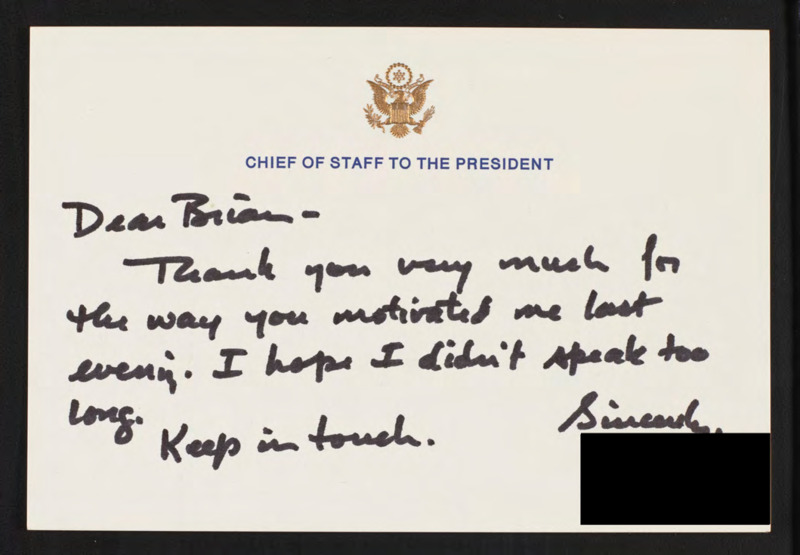 CHIEF OF STAFF TO THE PRESIDENT
Dear Brian -
Thank you very much for
the way you motivated me last
evening. I hope I didn't speak too
long.
Keep in touch.
Sincerely,